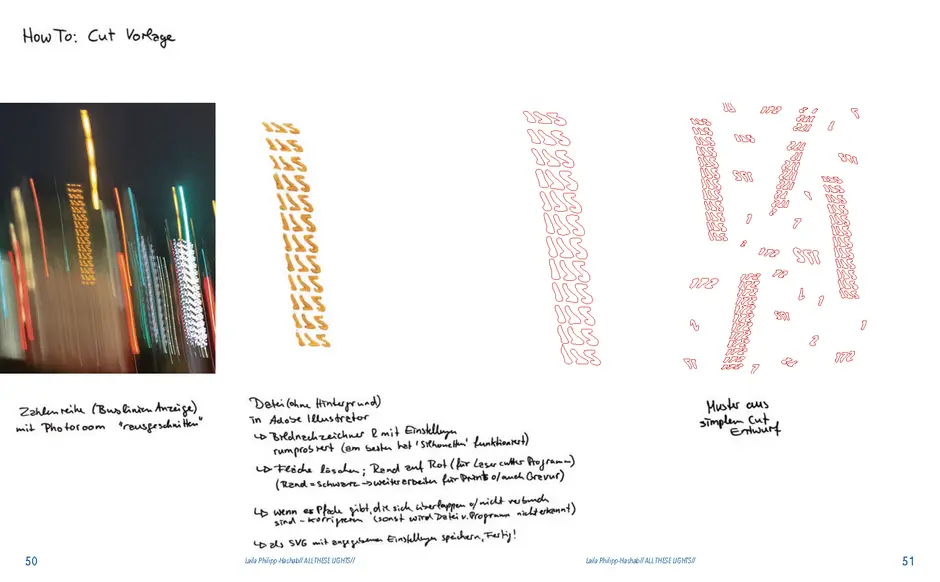 HowTo: Cut Vorlage
Zahlenreihe (Buslinien Anzeige)
mit Photoroom "rausgeschnitten"
Datei (ohne Hintergrund)
in Adobe Illustrator
↳ Bildnachzeichner mit Einstellungen
rumprobiert (am besten hat 'Silhouetten' funktioniert)
↳ Fläche löschen; Rand auf Rot (für Lasercutter Programm)
(Rand = schwarz → weiterarbeiten für Prints o/auch Gravur)
↳ wenn es Pfade gibt, die sich überlappen o/nicht verbunden
sind - korrigieren (sonst wird Datei v. Programm nicht erkannt)
↳ als SVG mit angegebenen Einstellungen speichern, Fertig!
Muster aus
simplem Cut
Entwurf
178
178
172
50
Laila Philipp-Hashabi// ALL THESE LIGHTS//
Laila Philipp-Hashabi// ALL THESE LIGHTS//
51